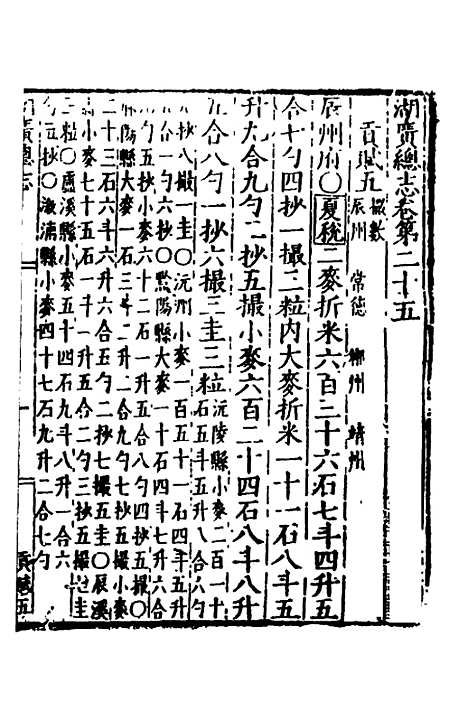 湖廣總志卷第二十五
貢賦五 總數
辰州 常德 郴州 靖州
辰州府〇夏稅二麥折米六百三十六石七斗四升五
合十勺四抄一撮三粒內大麥折米一十一石八斗五
升九合九勺二抄五撮小麥六百二十四石八斗八升
五合八勺一抄六撮三圭三粒沅陵縣小麥二百一十
石五斗五升八合六勺
抄八撮一圭〇沅州小麥一百五十一石四斗五升
合一勺六抄〇黔陽縣大麥一十石四斗七升六合
勺五抄小麥六十二石一升五合六勺四抄五撮〇
陽縣大麥一石三斗二升二合九勺七抄五撮小麥
二十三石六斗六升六合五勺二抄七撮五圭〇辰溪
小麥七十五石一斗一升五合二勺三抄五撮 圭
三粒〇盧溪縣小麥五十四石九斗八升一合六
勺 抄〇漵浦縣小麥四十七石九升二合七勺
廣總志
貢賦五